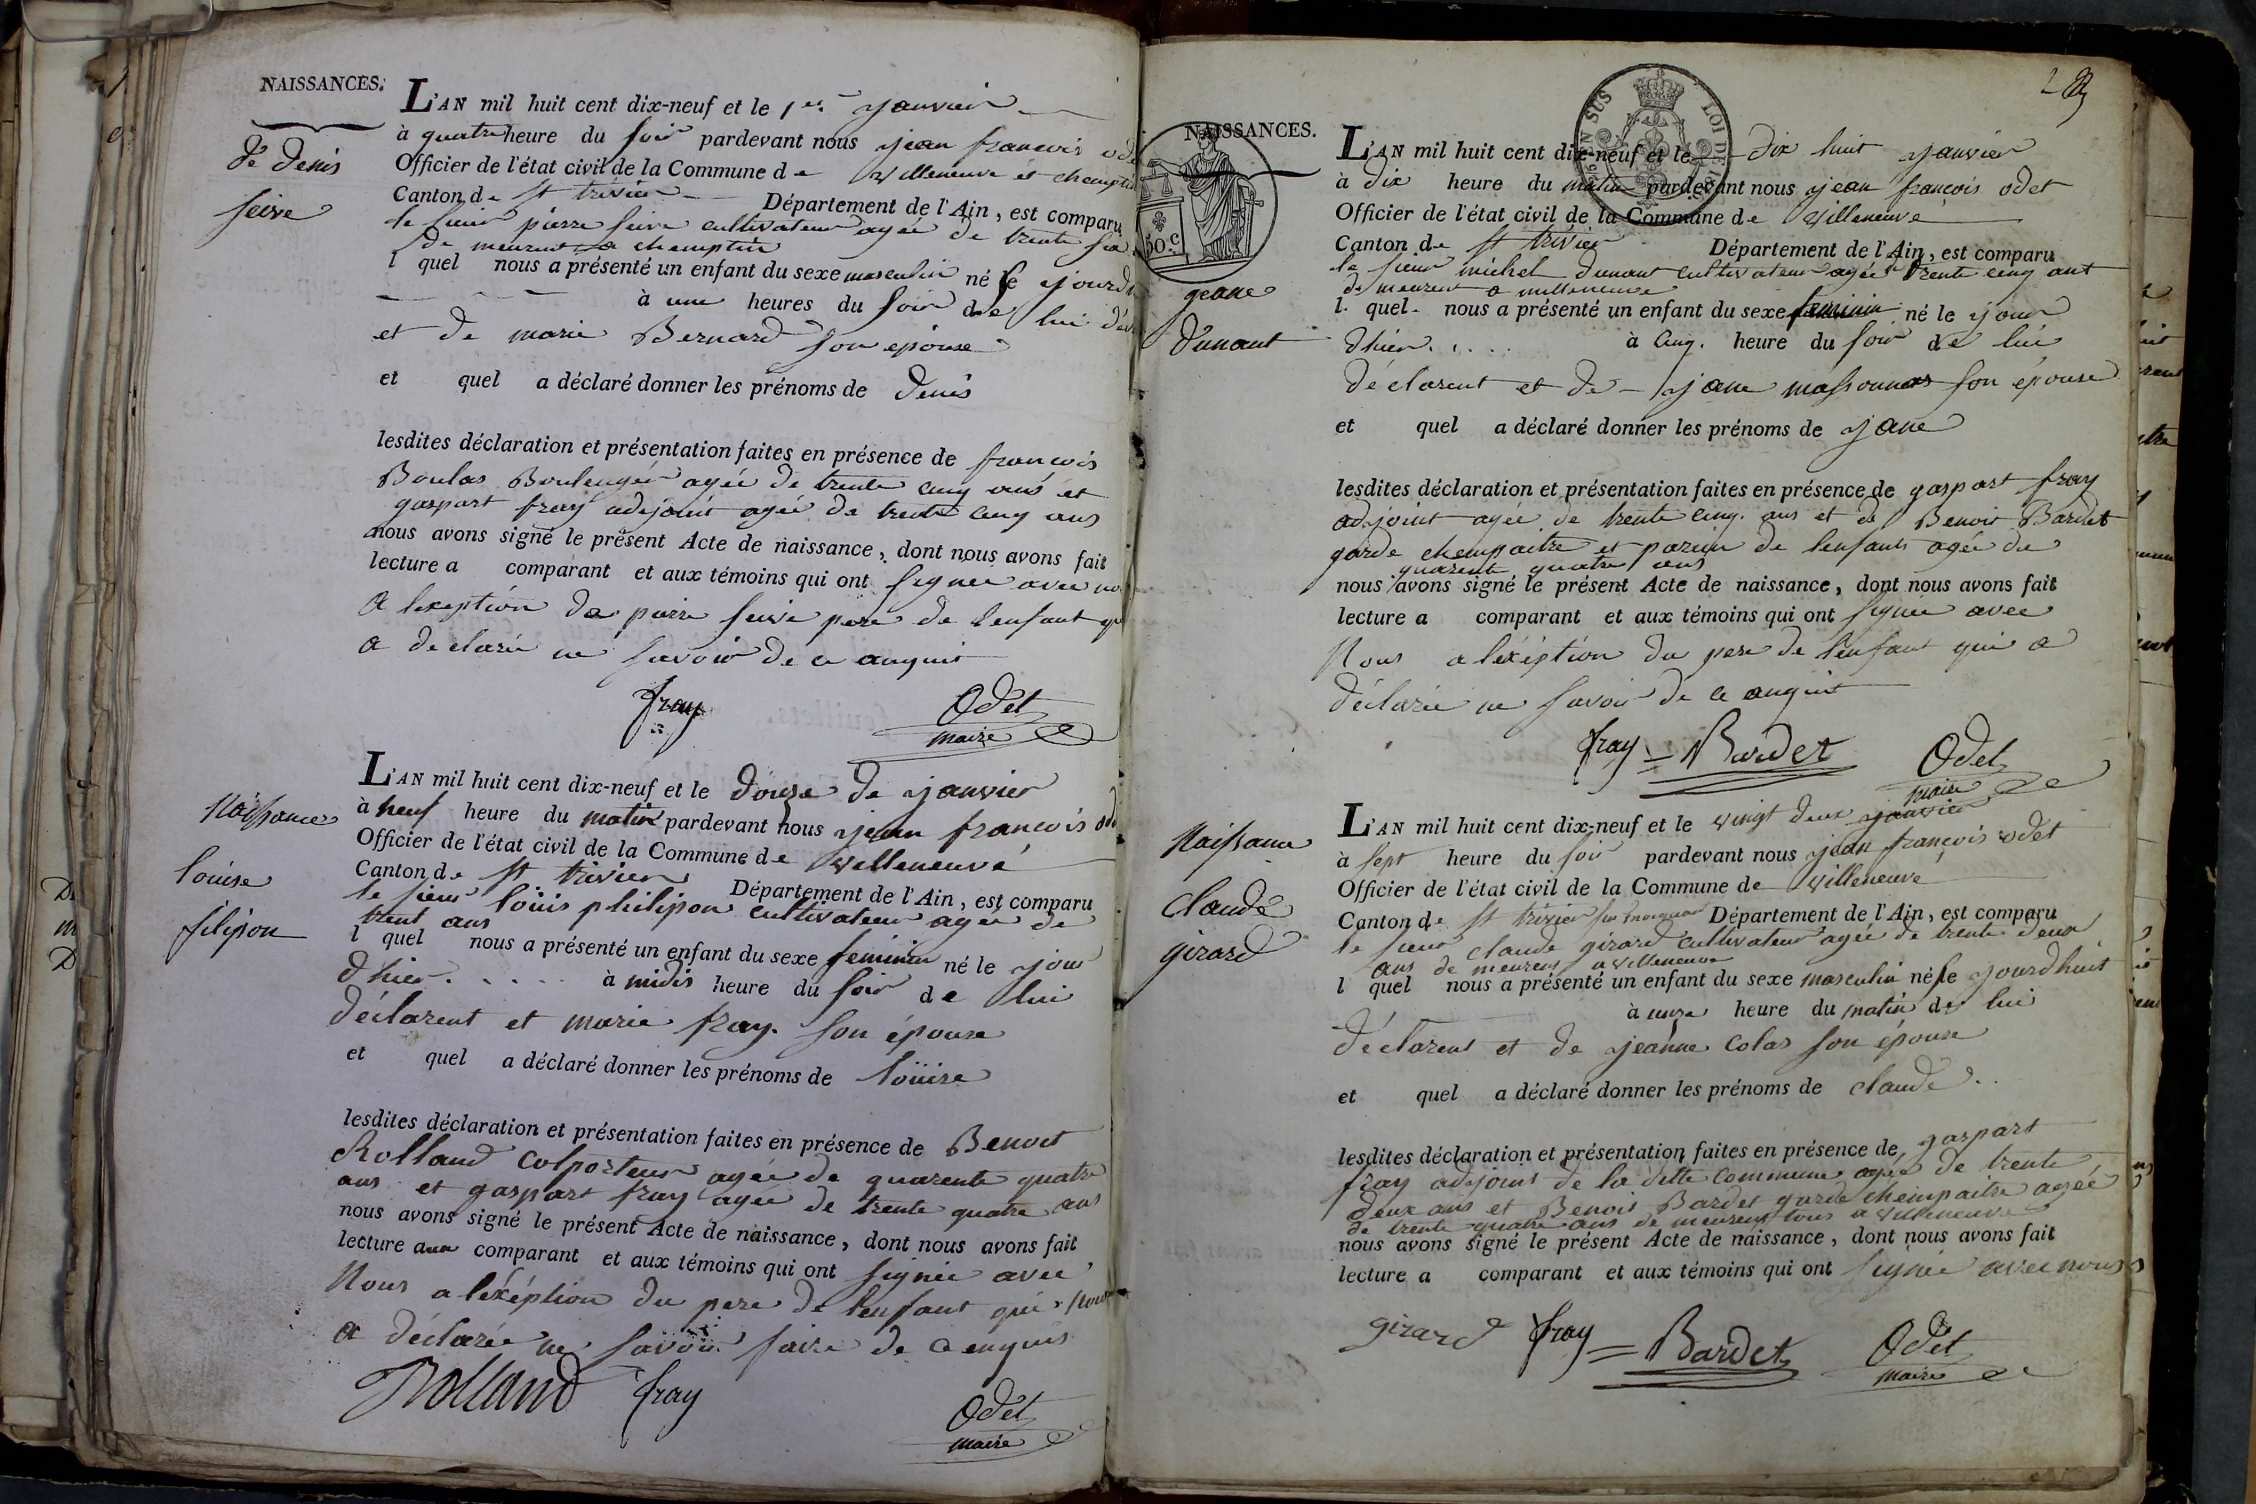 NAISSANCES.
de denis
seive
L'AN mil huit cent dix-neuf et le 1er janvier
à quatre heure du soir pardevant nous jean francois
Officier de l'état civil de la Commune de villeneuve et
Canton de st trivier Département de l'Ain, est comparu
le sieur pierre seive cultivateur agée de trente six
de meurent a chemptin
l quel nous a présenté un enfant du sexe masculin né le
à une heures du soir de lui
et de marie Bernard son epouse
et quel a déclaré donner les prénoms de denis
lesdites déclaration et présentation faites en présence de francois
Boulas Boulengér agée de trente cinq ans et
gaspart fray adjoint agée de trente cinq ans
nous avons signé le présent Acte de naissance, dont nous avons fait
lecture a comparant et aux témoins qui ont signée avec
A lexeption de pierre seive pere de lenfant
a declarée ne savoir de ce anquit
fray
Odet
maire
Naissance
louise
filipon
L'AN mil huit cent dix-neuf et le douze de janvier
à neuf heure du matin pardevant nous jean francois
Officier de l'état civil de la Commune de villeneuve
Canton de st trivier Département de l'Ain, est comparu
le sieur loüis philipon cultivateur agée de
trent ans
l quel nous a présenté un enfant du sexe feminin né le jour
dhier. à midis heure du soir de lui
déclarent et marie fray. son épouse
et quel a déclaré donner les prénoms de loüise
lesdites déclaration et présentation faites en présence de Benoit
Rolland colporteur agée de quarente quatre
ans et gaspart fray agée de trente quatre ans
nous avons signé le présent Acte de naissance, dont nous avons fait
lecture aux comparant et aux témoins qui ont signée avec
Nous a léxéption du pere de lenfant qui
a déclarée ne savoir faire de ce enquis
Rolland fray
Odet
maire
2
TIMBRE
NAISSANCES.
50.c
jeane
dunant
L'AN mil huit cent dix-neuf et le dix huit janvier
à dix heure du matin pardevant nous jean francois odet
Officier de l'état civil de la Commune de villeneuve
Canton de st trivier Département de l'Ain, est comparu
le sieur michel dunant cultivateur agée trente cinq ant
de meurent a villeneuve
l. quel. nous a présenté un enfant du sexe feminin né le jour
dhier. à cinq. heure du soir de lui
déclarent et de jane massonnet son épouse
et quel a déclaré donner les prénoms de jane
lesdites déclaration et présentation faites en présence de gaspart fray
adjoint agée de trente cinq. ans et de Benoit Bardet
garde chempaitre et parein de lenfant agée de
quarent quatre ans
nous avons signé le présent Acte de naissance, dont nous avons fait
lecture a comparant et aux témoins qui ont signée avec
Nous a léxéption du pere de lenfant qui a
déclarée ne savoir de ce anquit
fray = Bardet
Odet
maire
Naissance
claude
girard
L'AN mil huit cent dix-neuf et le vingt deux janvier
à sept heure du soir pardevant nous jean francois odet
Officier de l'état civil de la Commune de villeneuve
Canton de st trivier sur moignan Département de l'Ain, est comparu
le sieur claude girard cultivateur agée de trente deux
ans de meurent a villeneuve
l quel nous a présenté un enfant du sexe masculin né le jourdhuit
à unze heure du matin de lui
déclarent et de jeanne colas son épouse
et quel a déclaré donner les prénoms de claude.
lesdites déclaration et présentation faites en présence de gaspart
fray adjoint de la ditte commune agée de trente
deux ans et Benoit Bardet garde chempaitre agée
de trente quatre ans de meurent tous a villeneuve
nous avons signé le présent Acte de naissance, dont nous avons fait
lecture a comparant et aux témoins qui ont signée avec nous
girard fray = Bardet
Odet
maire